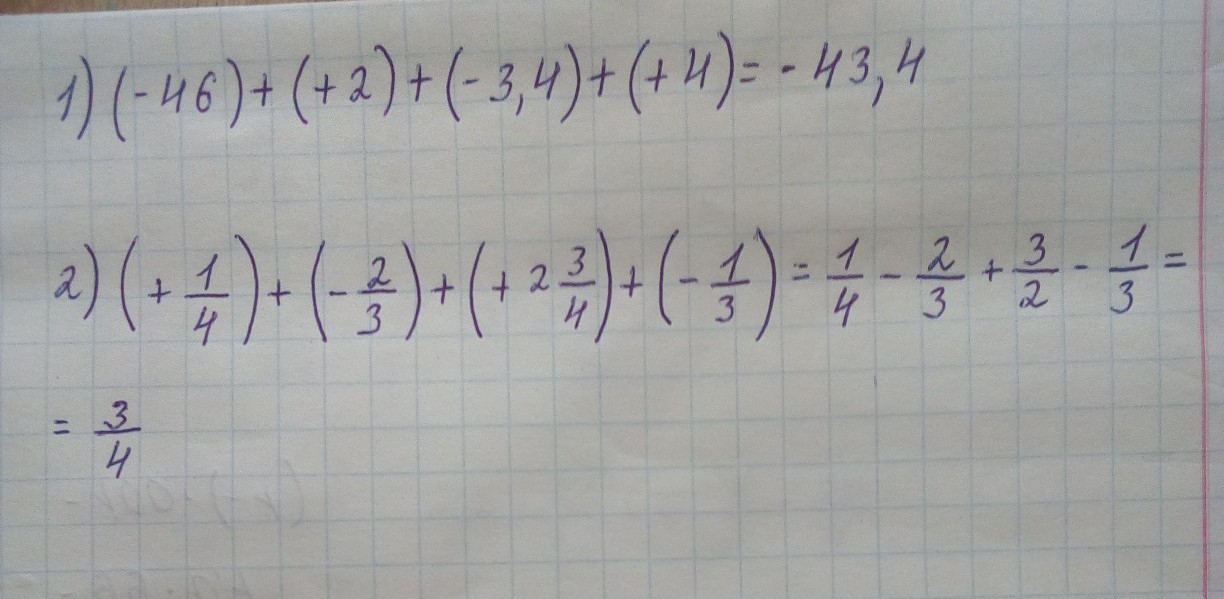 1) (-46)+(+2)+(-3,4)+(+4)=-43,4
2) (+1/4)+(-2/3)+(+2 3/4)+(-1/3)=1/4-2/3+3/2-1/3=
=3/4